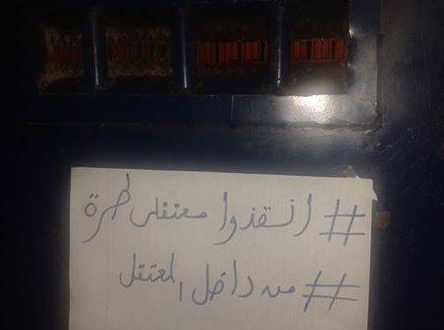 # انقذوا معتقلى طرة
# من داخل المعتقل